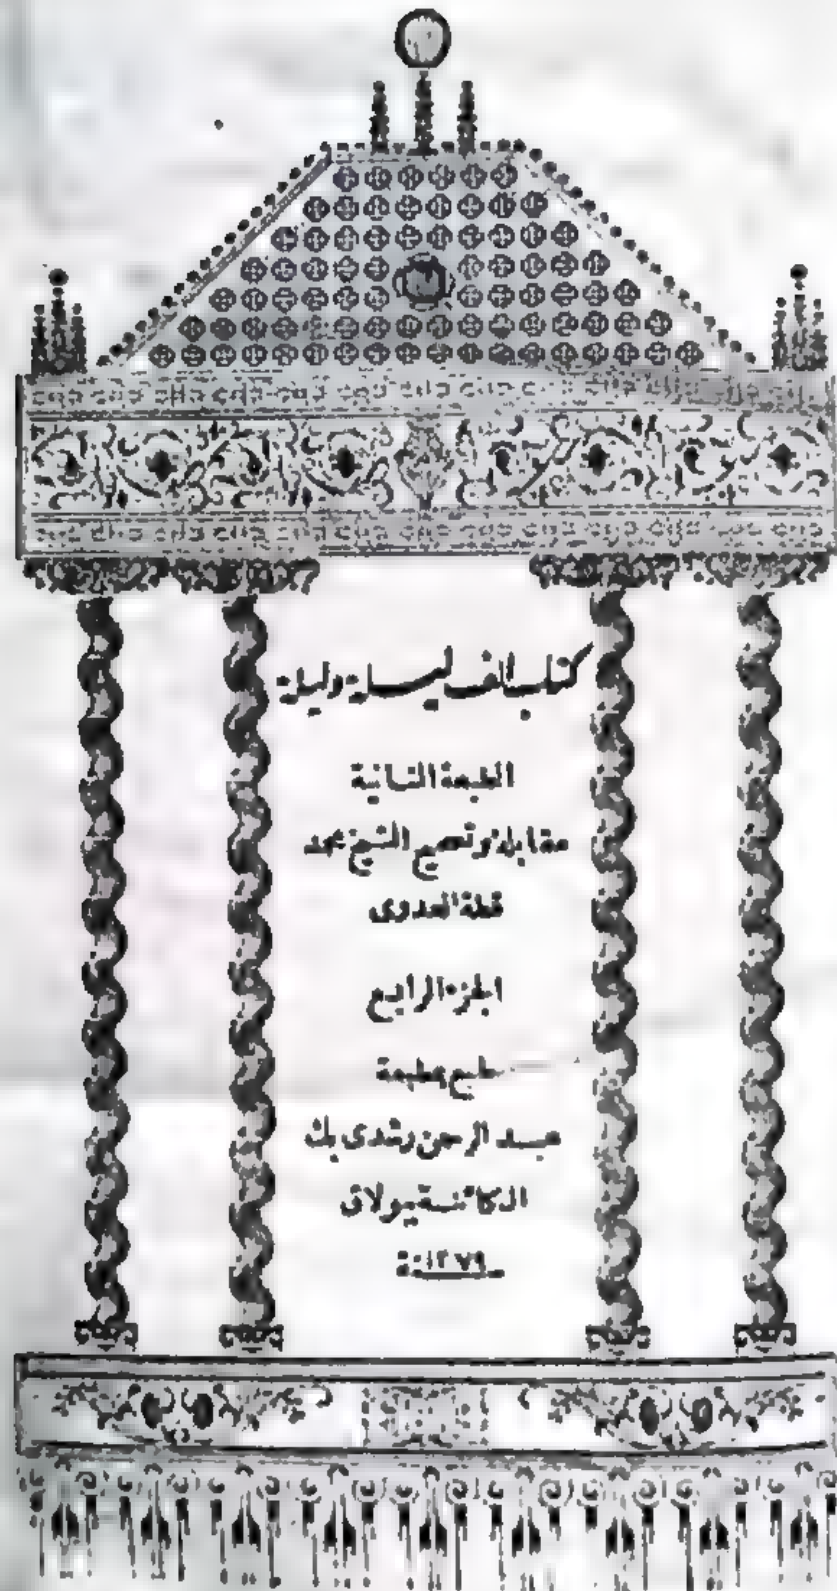 كتاب ألف ليلة وليلة
الطبعة الثانية
مقابلة وتصحيح الشيخ محمد
قطة العدوى
الجزء الرابع
طبع بمطبعة
عبد الرحمن رشدى بك
الكائنة ببولاق
سنة ١٢٧٩